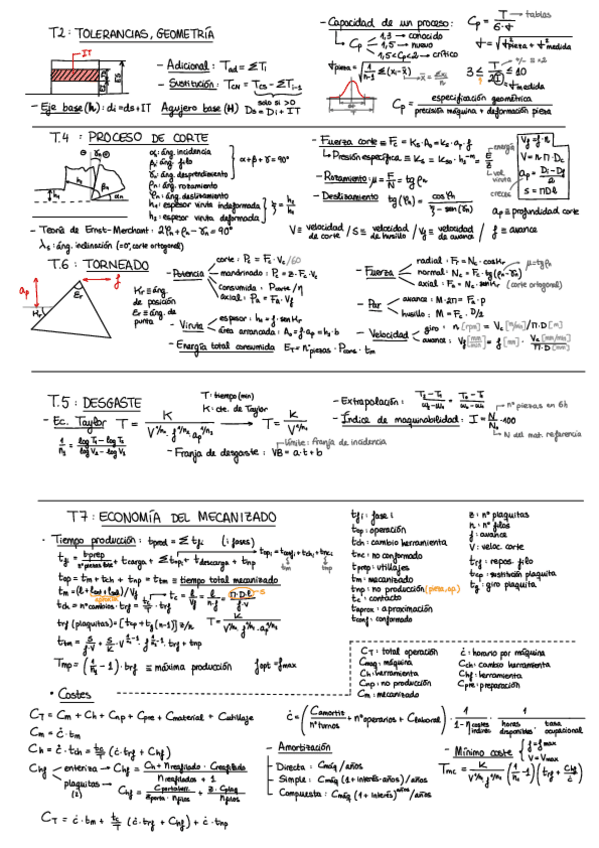 T2: TOLERANCIAS, GEOMETRÍA
IT
- Adicional: Tad = ΣTi
- Sustitución: TCN = TCS - ΣTi-1
solo si >0
- Eje base (h): di = ds + IT Agujero base (H) Ds = Di + IT
- Capacidad de un proceso: Cp = T / 6·σ → tablas
Cp
1,3 → conocido
1,5 → nuevo
1,5<Cp<2 → crítico
σ = √(σ²pieza + σ²medida)
σpieza = √(1/(n-1) Σ(xi - x̄)²)
3 ≤ T/2I ≤ 10
σmedida
Cp = especificación geométrica / precisión máquina + deformación pieza
T.4 : PROCESO DE CORTE
α: áng. incidencia
β: áng. filo
γ: áng. desprendimiento
α+β+γ = 90°
áng. rozamiento
áng. deslizamiento
h1: espesor viruta indeformada
h2: espesor viruta deformada
- Teoría de Ernst-Merchant: 2φn + ρn - γn = 90°
λs: áng. inclinación (=0°, corte ortogonal)
- Fuerza corte ≡ Fc = Ks·Ao = Ks·ap·f
Presión específica ≡ Ks = Kso·h2^-m
- Rozamiento: μ = F/N = tg ρn
- Deslizamiento
energía
vol. viruta
Vf = f·n
V = n·Π·Dc
ap = (Di - Df)/2
S = ΠDl
ap ≡ profundidad corte
V ≡ velocidad de corte / S ≡ velocidad de husillo / Vf ≡ velocidad de avance / f ≡ avance
T.6 : TORNEADO
ap
f
Er
Kr
Kr ≡ áng. de posición
Er ≡ áng. de punta
- Potencia
corte: Pc = Fc·Vc/60
mandrinado: Pc = z·Fc·Vc
consumida: Pcorte/η
axial: Pa = Fa·Vf
- Viruta
espesor: ho = f·sen Kr
área arrancada: Ao = f·ap = ho·b
- Energía total consumida ET = nº piezas · Pcons · tm
- Fuerza
radial: Fr = No·cos Kr
normal: Nc = Fc·tg(ρn-γn)
axial: Fa = No·sen Kr (corte ortogonal)
- Par
avance: M·2Π = Fa·p
husillo: M = Fc·D/2
- Velocidad
giro: n [rpm] = Vc [m/min] / Π·D [m]
avance: Vf [mm/min] = f [mm] · Vc [mm/min] / Π·D [mm]
T.5 : DESGASTE
- Ec. Taylor T = K / V^1/n1 · f^1/n2 · ap^1/n3 → T = K / V^1/n1
T: tiempo (min)
K: cte. de Taylor
límite: franja de incidencia
- Franja de desgaste: VB = a·t + b
- Extrapolación:
- Índice de maquinabilidad: I = N/No · 100
nº piezas en 6h
N del mat. referencia
T7 : ECONOMÍA DEL MECANIZADO
· Tiempo producción: tprod = Σ tfi (i: fases)
tf = tprep / nº piezas lote + tcarga + Σ topi + tdescarga + tnp
top = tm + tch + tnp = ttm ≡ tiempo total mecanizado
tch = nº cambios · trf
trf (plaquitas) = [trp + tg(n-1)] z/n
Tmp = (1/n1 - 1) · trf ≡ máxima producción fopt = fmax
tfi: fase i
top: operación
tch: cambio herramienta
tnc: no conformado
tprep: utillajes
tm: mecanizado
tnp: no producción (pieza, ap.)
tc: contacto
taprox: aproximación
tconf: conformado
z: nº plaquitas
n: nº filos
f: avance
V: veloc. corte
trf: repos. filo
trp: sustitución plaquita
tg: giro plaquita
CT: total operación
Cmaq: máquina
Ch: herramienta
Cnp: no producción
Cm: mecanizado
ċ: horario por máquina
Cch: cambio herramienta
Chf: herramienta
Cpre: preparación
• Costes
CT = Cm + Ch + Cnp + Cpre + Cmaterial + Cutillaje
Cm = ċ·tm
Ch = ċ·tch = tc/T (ċ·trf + Chf)
Chf
enteriza → Chf = Ch + nreafilado · Creafilado / nreafilados + 1
plaquitas (z) → Chf = Cportaherr / Zporta · nfilos + z·Cplaq / nfilos
CT = ċ·tm + tc/T (ċ·trf + Chf) + ċ·tnp
ċ = (Camortiz / nº turnos + nº operarios + Claboral) · 1 / 1 - ncostes indirec. · 1 / horas disponibles · tasa ocupacional
- Amortización
Directa: Cmáq / años
Simple: Cmáq (1 + interés·años) / años
Compuesta: Cmáq (1 + interés)^años / años
- Mínimo coste
f = fmax
V = Vmax
Tmc = K / V^1/n1 f^1/n2 (1/n1 - 1)(trf + Chf/ċ)